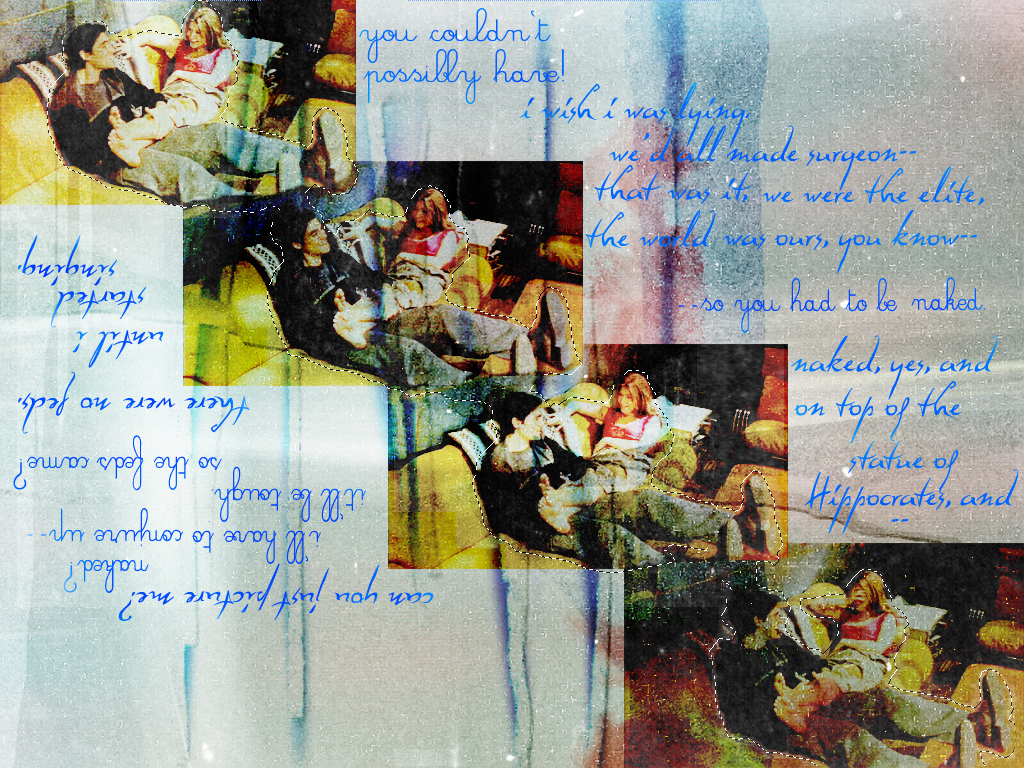 you couldn't
possibly have!
i wish i was lying.
we'd all made surgeon--
that was it, we were the elite,
the world was ours, you know--
--so you had to be naked.
naked, yes, and
on top of the
statue of
Hippocrates, and
--
can you just picture me?
naked?
i'll have to conjure up--
it'll be tough.
so the feds came?
there were no feds.
until i
started
singing.